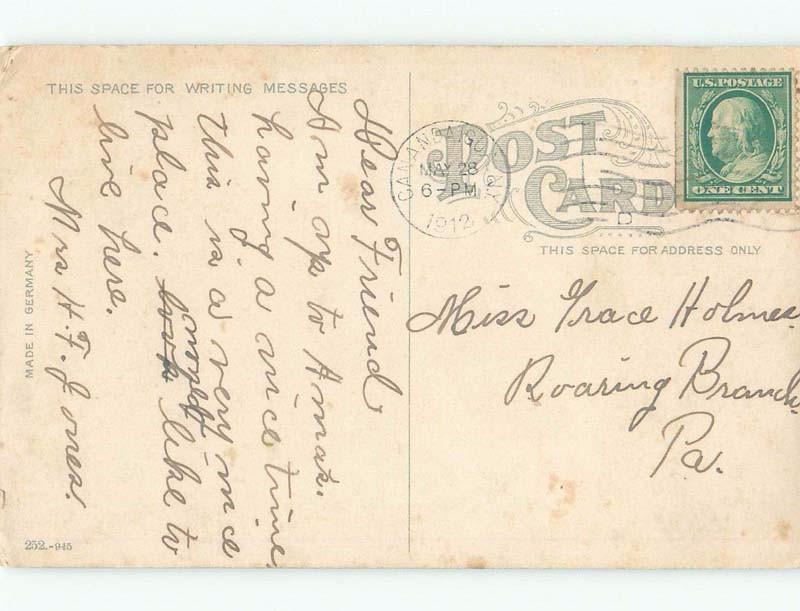 THIS SPACE FOR WRITING MESSAGES
Dear Friend
Am up to Amas.
having a nice time
this is a very nice
place. would like to
live here.
Mrs H. F. Jones.
MADE IN GERMANY
252.-945
POST CARD
CANANDAIGUA N.Y.
MAY 28
6-PM
1912
D
U.S. POSTAGE
ONE CENT
THIS SPACE FOR ADDRESS ONLY
Miss Grace Holmes
Roaring Branch
Pa.